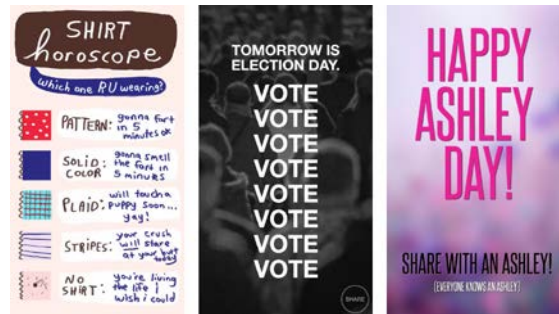 SHIRT
horoscope
which one RU wearing?
PATTERN: gonna fart
in 5
minutes ok
SOLID COLOR: gonna smell
the fart in
5 minutes
PLAID: will touch a
puppy soon...
yay!
STRIPES: your crush
will stare
at your butt
today
NO SHIRT: you're living
the life I
wish i could
TOMORROW IS
ELECTION DAY.
VOTE
VOTE
VOTE
VOTE
VOTE
VOTE
VOTE
VOTE
SHARE
HAPPY
ASHLEY
DAY!
SHARE WITH AN ASHLEY!
(EVERYONE KNOWS AN ASHLEY)